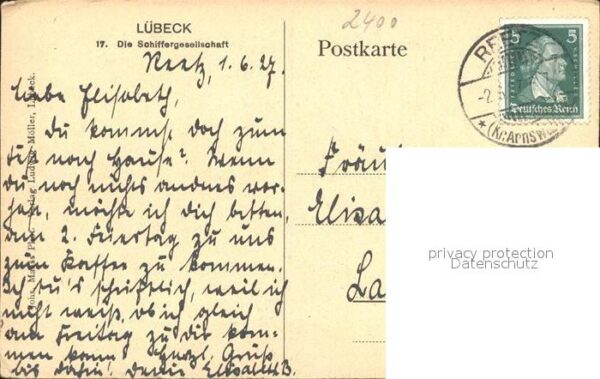 LÜBECK
17. Die Schiffergesellschaft
2400
Postkarte
Reetz, 1.6.27.
Liebe Elisabeth,
Du kommst doch zum
nach Hause? Wenn
du noch nichts andres vor-
hast, möchte ich dich bitten,
am 2. Feiertag zu uns
zum Kaffee zu kommen.
Ich tu's schriftlich, weil ich
nicht weiß, ob ich gleich
am Freitag zu dir kom-
men kann. Herzl. Gruß
bis dahin! Deine Elisabeth B.
Verlag Ludwig Möller, Lübeck.
5 5
Deutsches Reich
RE
(Kr. Arnsw
Fräul
Elisa
La
privacy protection
Datenschutz